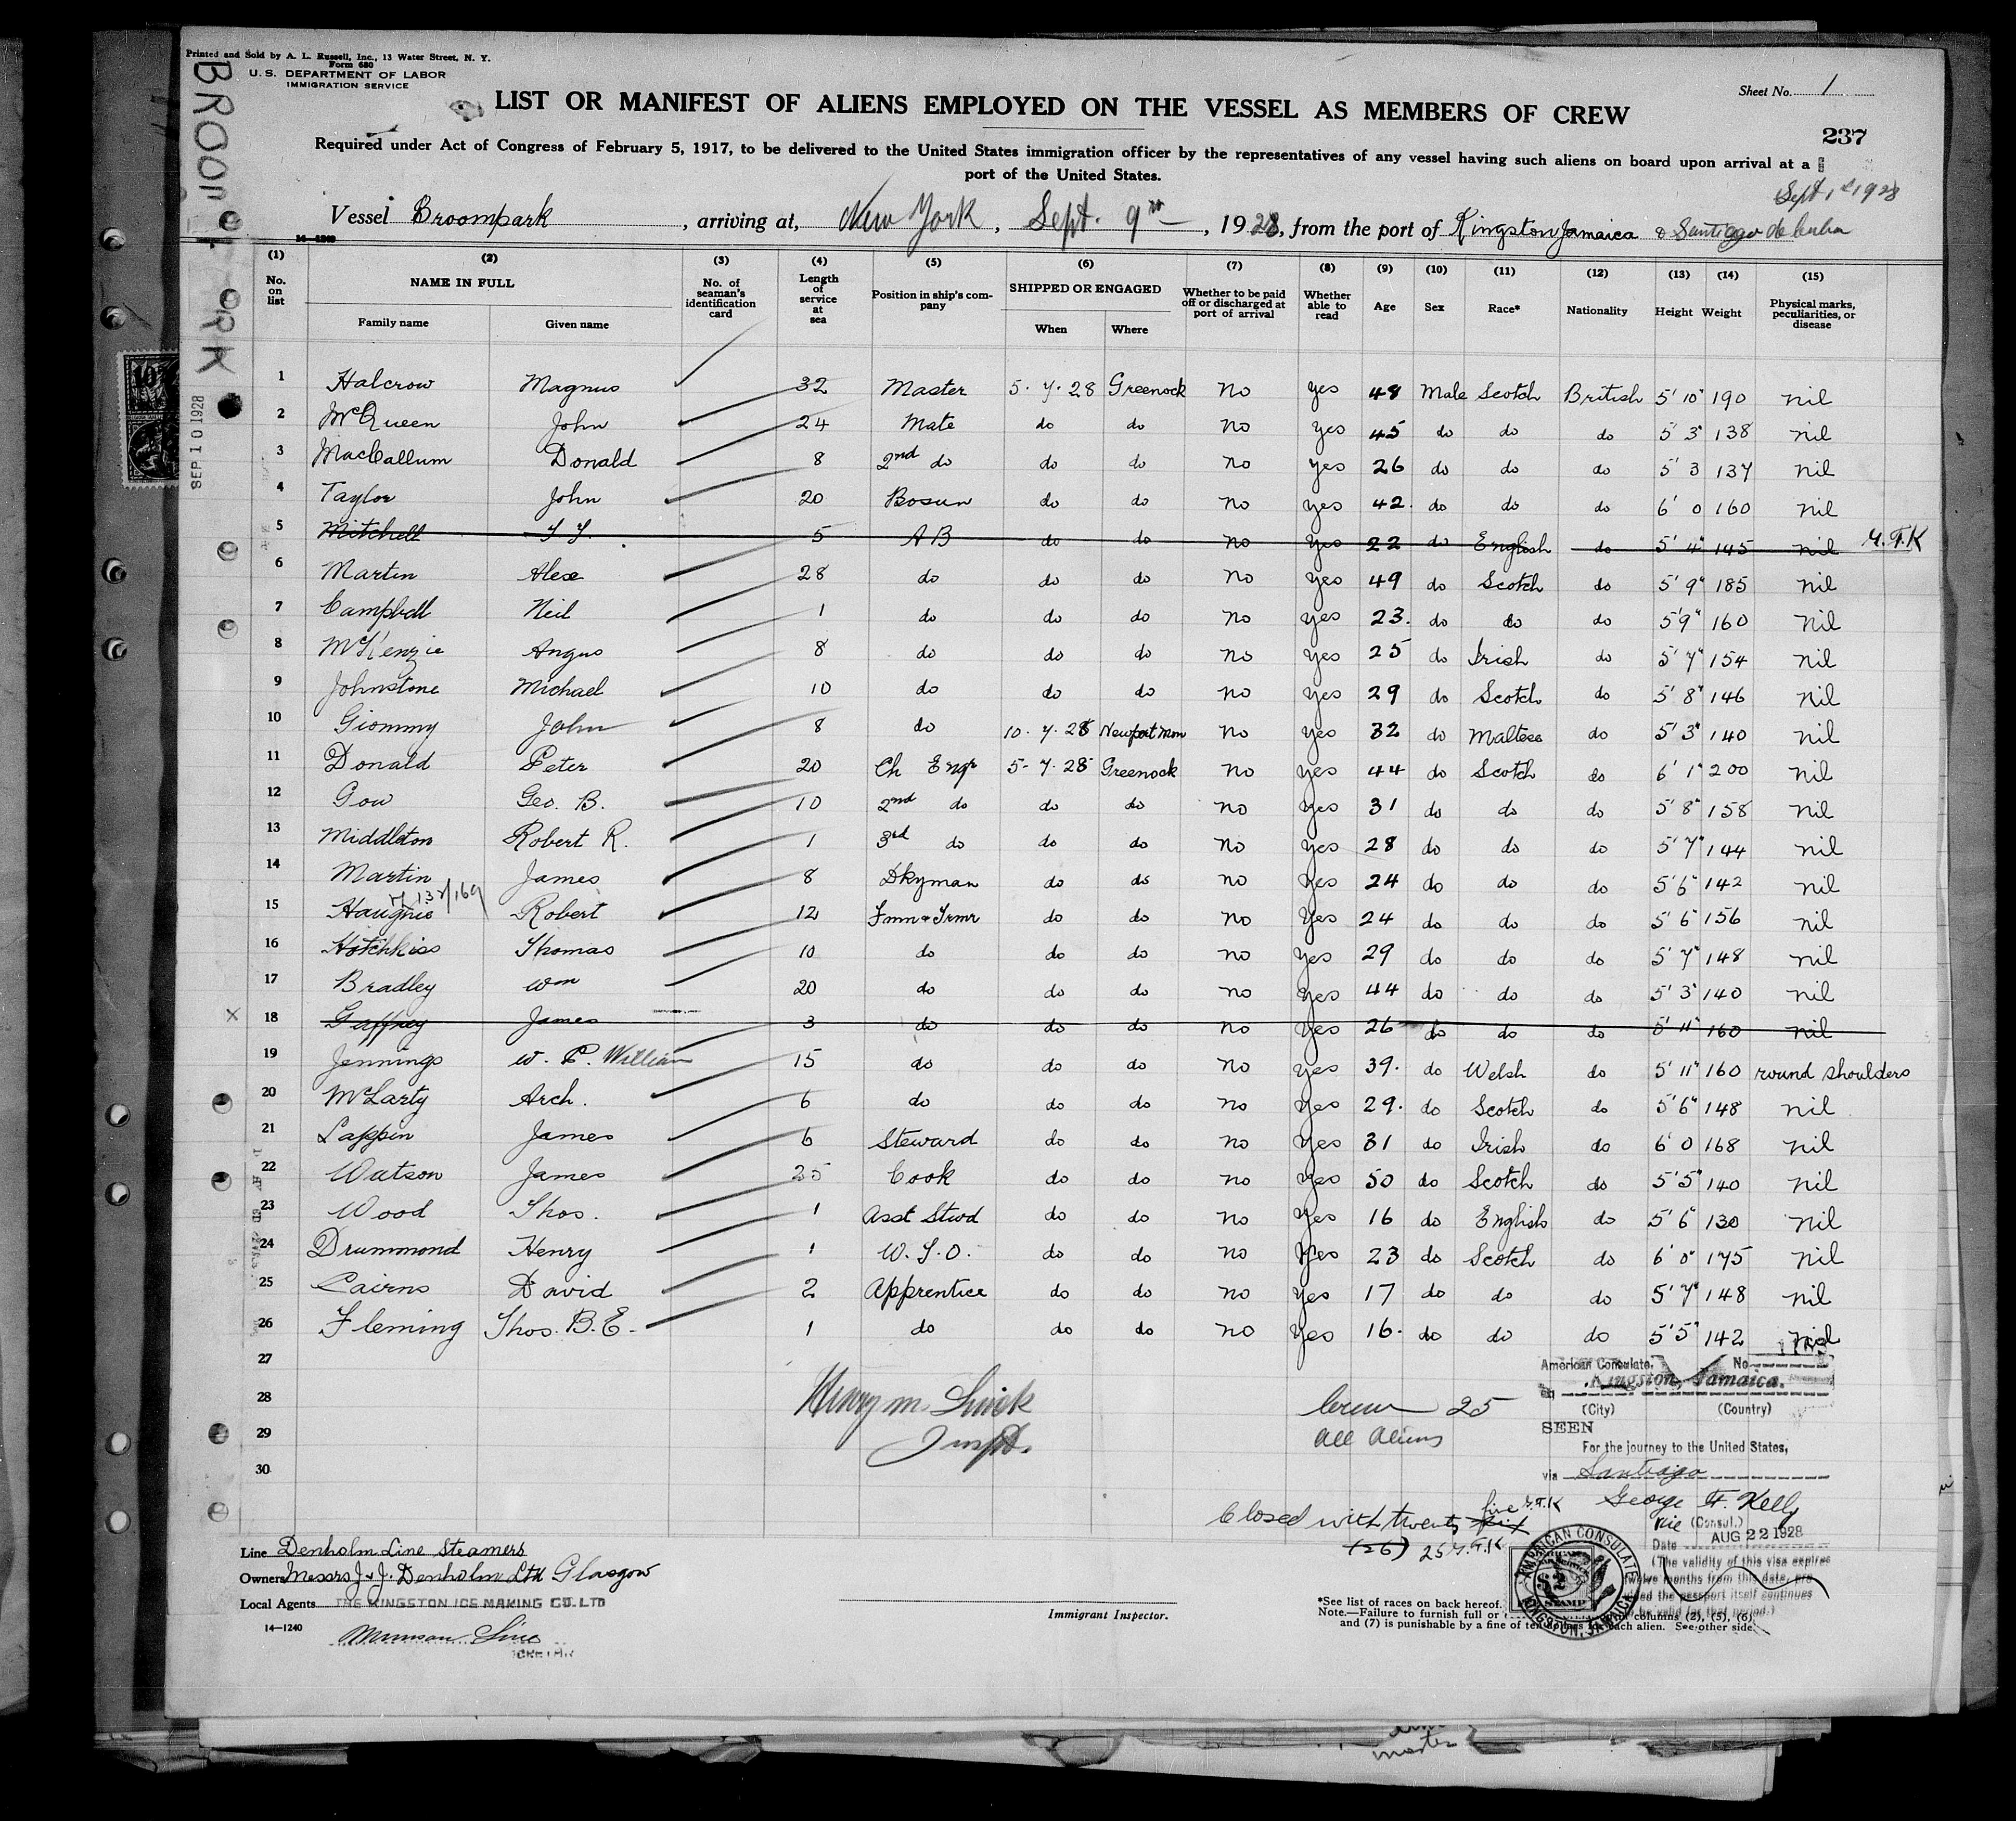 Printed and Sold by A. L. Russell, Inc., 13 Water Street, N. Y.
Form 680
U.S. DEPARTMENT OF LABOR
IMMIGRATION SERVICE
Sheet No. 1
LIST OR MANIFEST OF ALIENS EMPLOYED ON THE VESSEL AS MEMBERS OF CREW
237
Required under Act of Congress of February 5, 1917, to be delivered to the United States immigration officer by the representatives of any vessel having such aliens on board upon arrival at a
port of the United States.
Sept 1st 1928
Vessel Broompark, arriving at, New York, Sept. 9th, 1928, from the port of Kingston Jamaica & Santiago de Cuba
14-1240
(1) (2) (3) (4) (5) (6) (7) (8) (9) (10) (11) (12) (13) (14) (15)
No. on list NAME IN FULL No. of seaman's identification card Length of service at sea Position in ship's company SHIPPED OR ENGAGED Whether to be paid off or discharged at port of arrival Whether able to read Age Sex Race* Nationality Height Weight Physical marks, peculiarities, or disease
Family name Given name When Where
1 Halcrow Magnus 32 Master 5.7.28 Greenock no yes 48 Male Scotch British 5' 10" 190 nil
2 McQueen John 24 Mate do do no yes 45 do do do 5' 3" 138 nil
3 MacCallum Donald 8 2nd do do do no yes 26 do do do 5' 3 137 nil
4 Taylor John 20 Bosun do do no yes 42. do do do 6' 0 160 nil
5 Mitchell 5 AB do do no yes 22 do English do 5' 4" 145 nil G.F.K
6 Martin Alex 28 do do do no yes 49 do Scotch do 5' 9" 185 nil
7 Campbell Neil 1 do do do no yes 23. do do do 5'9" 160 nil
8 McKenzie Angus 8 do do do no yes 25 do Irish do 5' 7" 154 nil
9 Johnstone Michael 10 do do do no yes 29 do Scotch do 5' 8" 146 nil
10 Giommy John 8 do 10.7.28 Newport Mon no yes 32 do Maltese do 5' 3" 140 nil
11 Donald Peter 20 Ch Engr 5-7.28 Greenock no yes 44 do Scotch do 6' 1" 200 nil
12 Gow Geo. B. 10 2nd do do do no yes 31 do do do 5' 8" 158 nil
13 Middleton Robert R. 1 3rd do do do no yes 28 do do do 5' 7" 144 nil
14 Martin James 8 Dkyman do do no yes 24 do do do 5' 6" 142 nil
15 Haughie Robert 12 Fmn & Trmr do do no yes 24 do do do 5' 6" 156 nil
16 Hotchkiss Thomas 10 do do do no yes 29 do do do 5' 7" 148 nil
17 Bradley Wm 20 do do do no yes 44 do do do 5' 3" 140 nil
x 18 Gaffney James 3 do do do no yes 26 do do do 5' 11" 160 nil
19 Jennings W. P. William 15 do do do no yes 39. do Welsh do 5' 11" 160 round shoulders
20 McLarty Arch. 6 do do do no yes 29. do Scotch do 5' 6" 148 nil
21 Lappin James 6 Steward do do no yes 31 do Irish do 6' 0 168 nil
22 Watson James 25 Cook do do no yes 50 do Scotch do 5' 5" 140 nil
23 Wood Thos. 1 Asst Stwd do do no yes 16 do English do 5' 6 130 nil
24 Drummond Henry 1 W.T.O. do do no yes 23 do Scotch do 6' 0" 175 nil
25 Cairns David 2 Apprentice do do no yes 17 do do do 5' 7" 148 nil
26 Fleming Thos. B.E. 1 do do do no yes 16. do do do 5' 5" 142 nil
27
28
29
30
Crew 25
All Aliens
Inspt.
American Consulate, No.
at Kingston, Jamaica.
(City) (Country)
SEEN
For the journey to the United States,
via Santiago
George F. Kelly
(Consul.)
Date AUG 22 1928
(The validity of this visa expires
twelve months from this date, provided the passport itself continues
to be valid for that period.)
Closed with twenty six five G.F.K
(26) 25 G.F.K
AMERICAN CONSULATE
KINGSTON, JAMAICA
STAMP
Line Denholm Line Steamers
Owners Messrs J. & J. Denholm Ltd Glasgow
Local Agents THE KINGSTON ICE MAKING CO. LTD
14-1240
Munson Line
Immigrant Inspector.
*See list of races on back hereof.
Note.—Failure to furnish full or columns (2), (5), (6),
and (7) is punishable by a fine of ten dollars for each alien. See other side.
SEP 10 1928
master